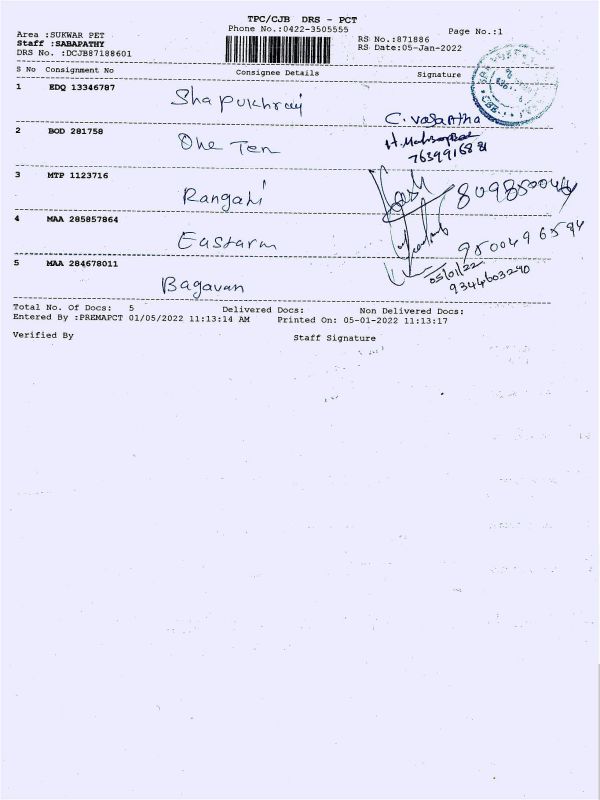 TPC/CJB DRS - PCT
Phone No.:0422-3505555
Page No.:1
Area :SUKWAR PET
RS No.:871886
Staff :SABAPATHY
RS Date:05-Jan-2022
DRS No. :DCJB87188601
S No Consignment No Consignee Details Signature
1 EDQ 13346787 Shapukhraj C. Vasantha
2 BOD 281758 One Ten
7639916881
3 MTP 1123716 Rangali
4 MAA 285857864 Eastarn 9500496594
5 MAA 284678011 Bagavan 05/01/22
9344603290
Total No. Of Docs: 5 Delivered Docs: Non Delivered Docs:
Entered By :PREMAPCT 01/05/2022 11:13:14 AM Printed On: 05-01-2022 11:13:17
Verified By Staff Signature